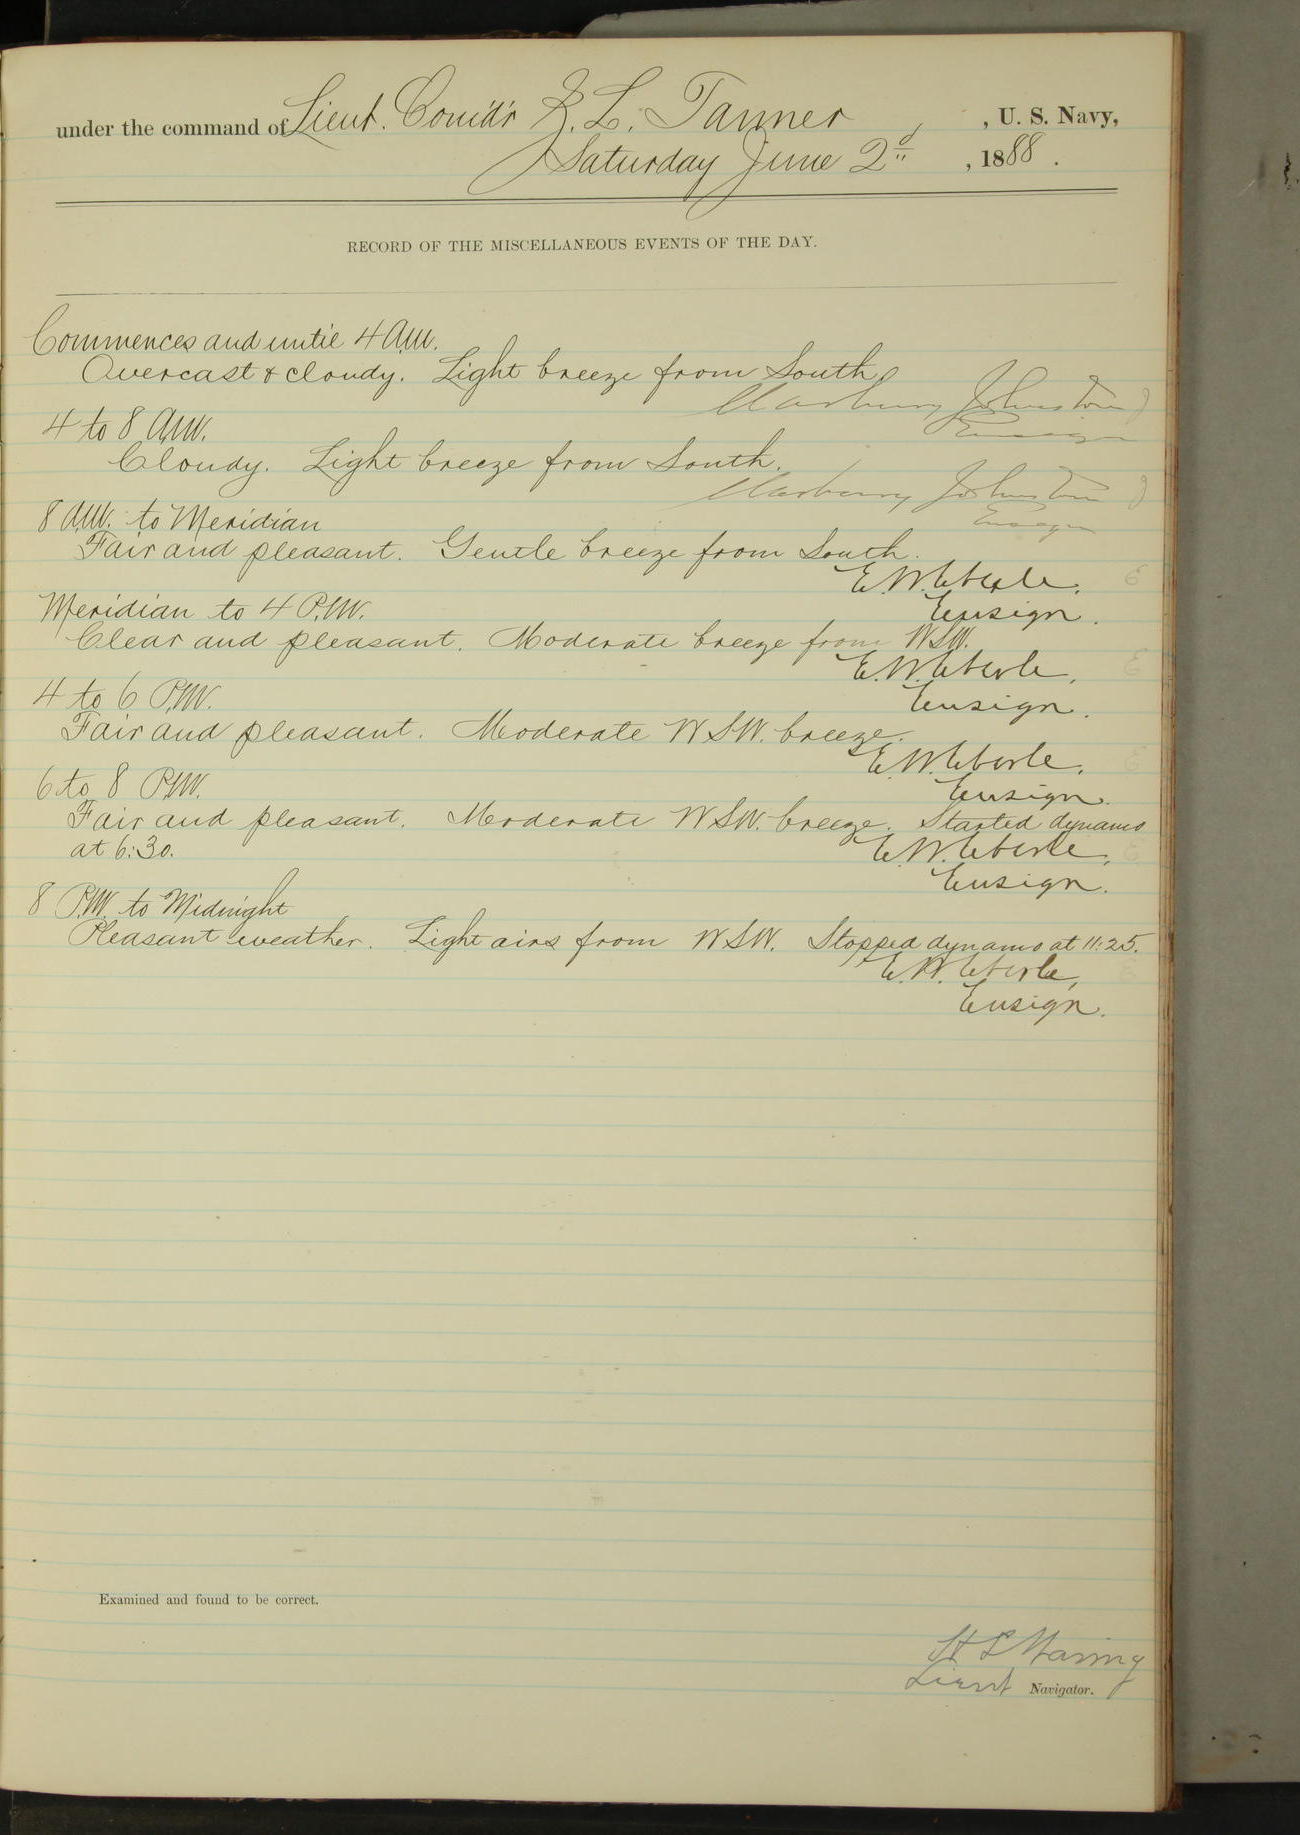 under the command of Lieut. Comd'r Z. L. Tanner, U. S. Navy,
Saturday June 2d, 1888.
RECORD OF THE MISCELLANEOUS EVENTS OF THE DAY.
Commences and until 4 A.M.
Overcast & cloudy. Light breeze from South.
Marbury Johnston
Ensign
4 to 8 A.M.
Cloudy. Light breeze from South.
Marbury Johnston
Ensign
8 A.M. to Meridian
Fair and pleasant. Gentle breeze from South.
E. W. Eberle,
Ensign.
Meridian to 4 P.M.
Clear and pleasant. Moderate breeze from WSW.
E. W. Eberle,
Ensign.
4 to 6 P.M.
Fair and pleasant. Moderate WSW. breeze.
E. W. Eberle,
Ensign.
6 to 8 P.M.
Fair and pleasant. Moderate WSW. breeze. Started dynamo
at 6:30.
E. W. Eberle,
Ensign.
8 P.M. to Midnight
Pleasant weather. Light airs from WSW. Stopped dynamo at 11:25.
E. W. Eberle,
Ensign.
Examined and found to be correct.
H S Waring
Lieut Navigator.